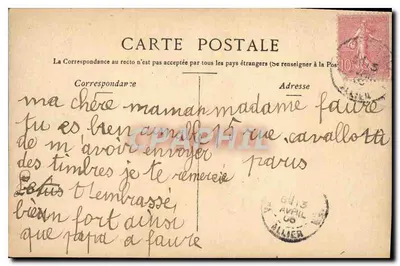 CARTE POSTALE
La Correspondance au recto n'est pas acceptée par tous les pays étrangers (Se renseigner à la Pos
Correspondance
Adresse
ma chère maman
tu es bien aimable
de m'avoir envoyer
des timbres je te remercie
t'embrasse
bien fort ainsi
que papa a faure
madame faure
15 rue cavallotti
paris
13
AVRIL
06
ALLIER
ALLIER
CPARHIL